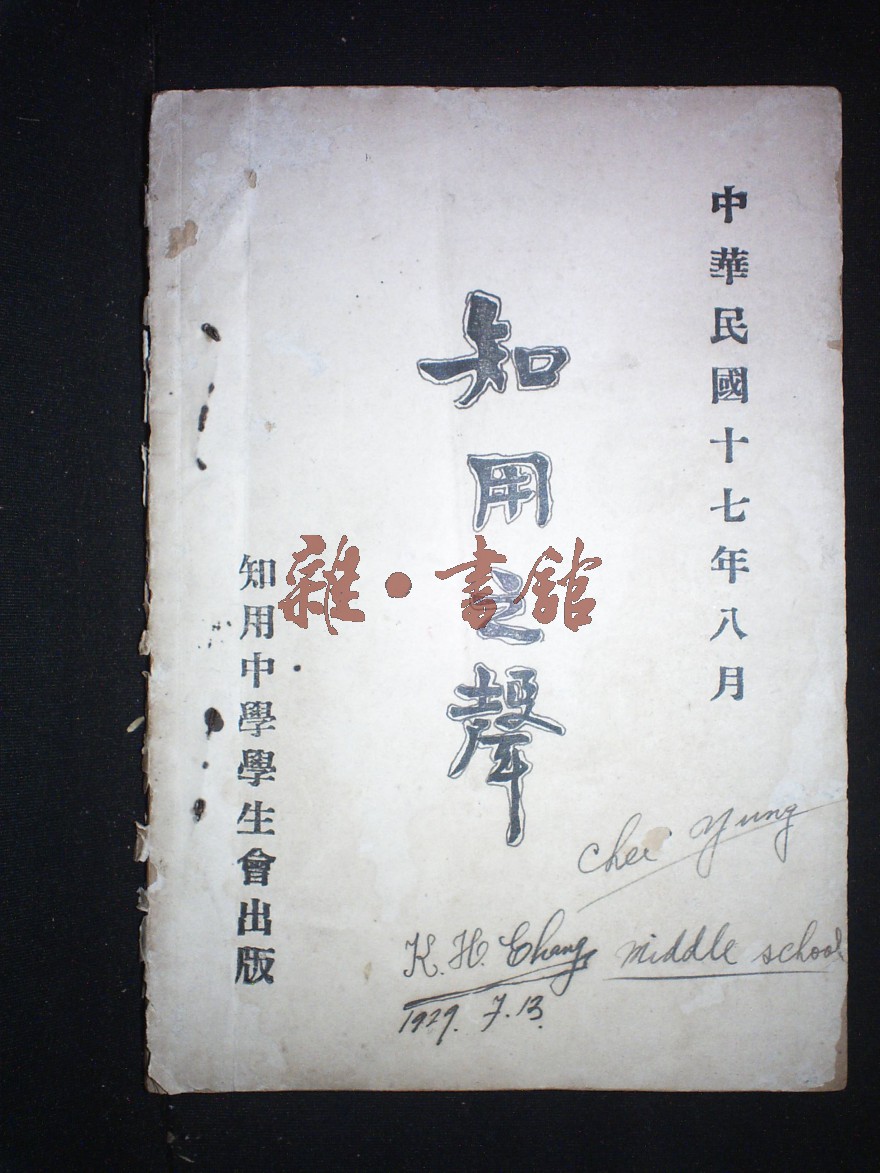 中華民國十七年八月
知用之聲
知用中學學生會出版
雜·書館
Chei Yung
middle school
K. H. Chang
1929. 7. 13.